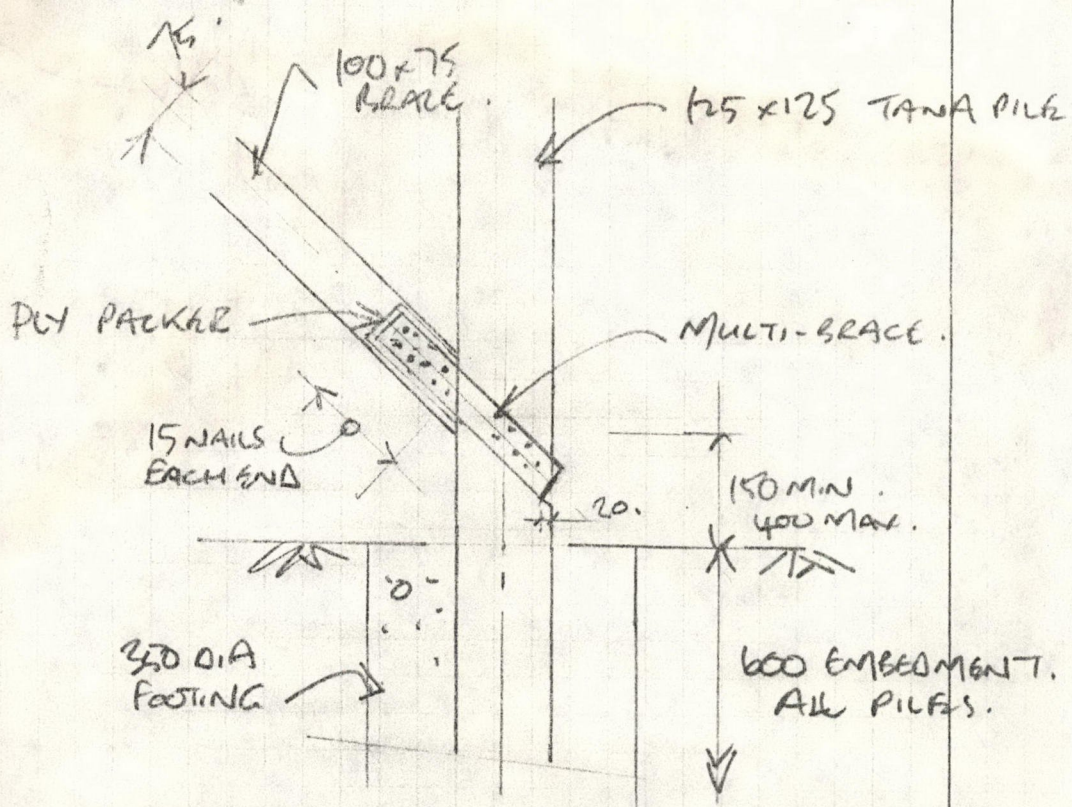 75
100 x 75
BRACE.
125 x 125 TANA PILE
PLY PACKER
MULTI-BRACE.
15 NAILS
EACH END
150 MIN.
400 MAX.
20.
350 DIA
FOOTING
600 EMBEDMENT.
ALL PILES.